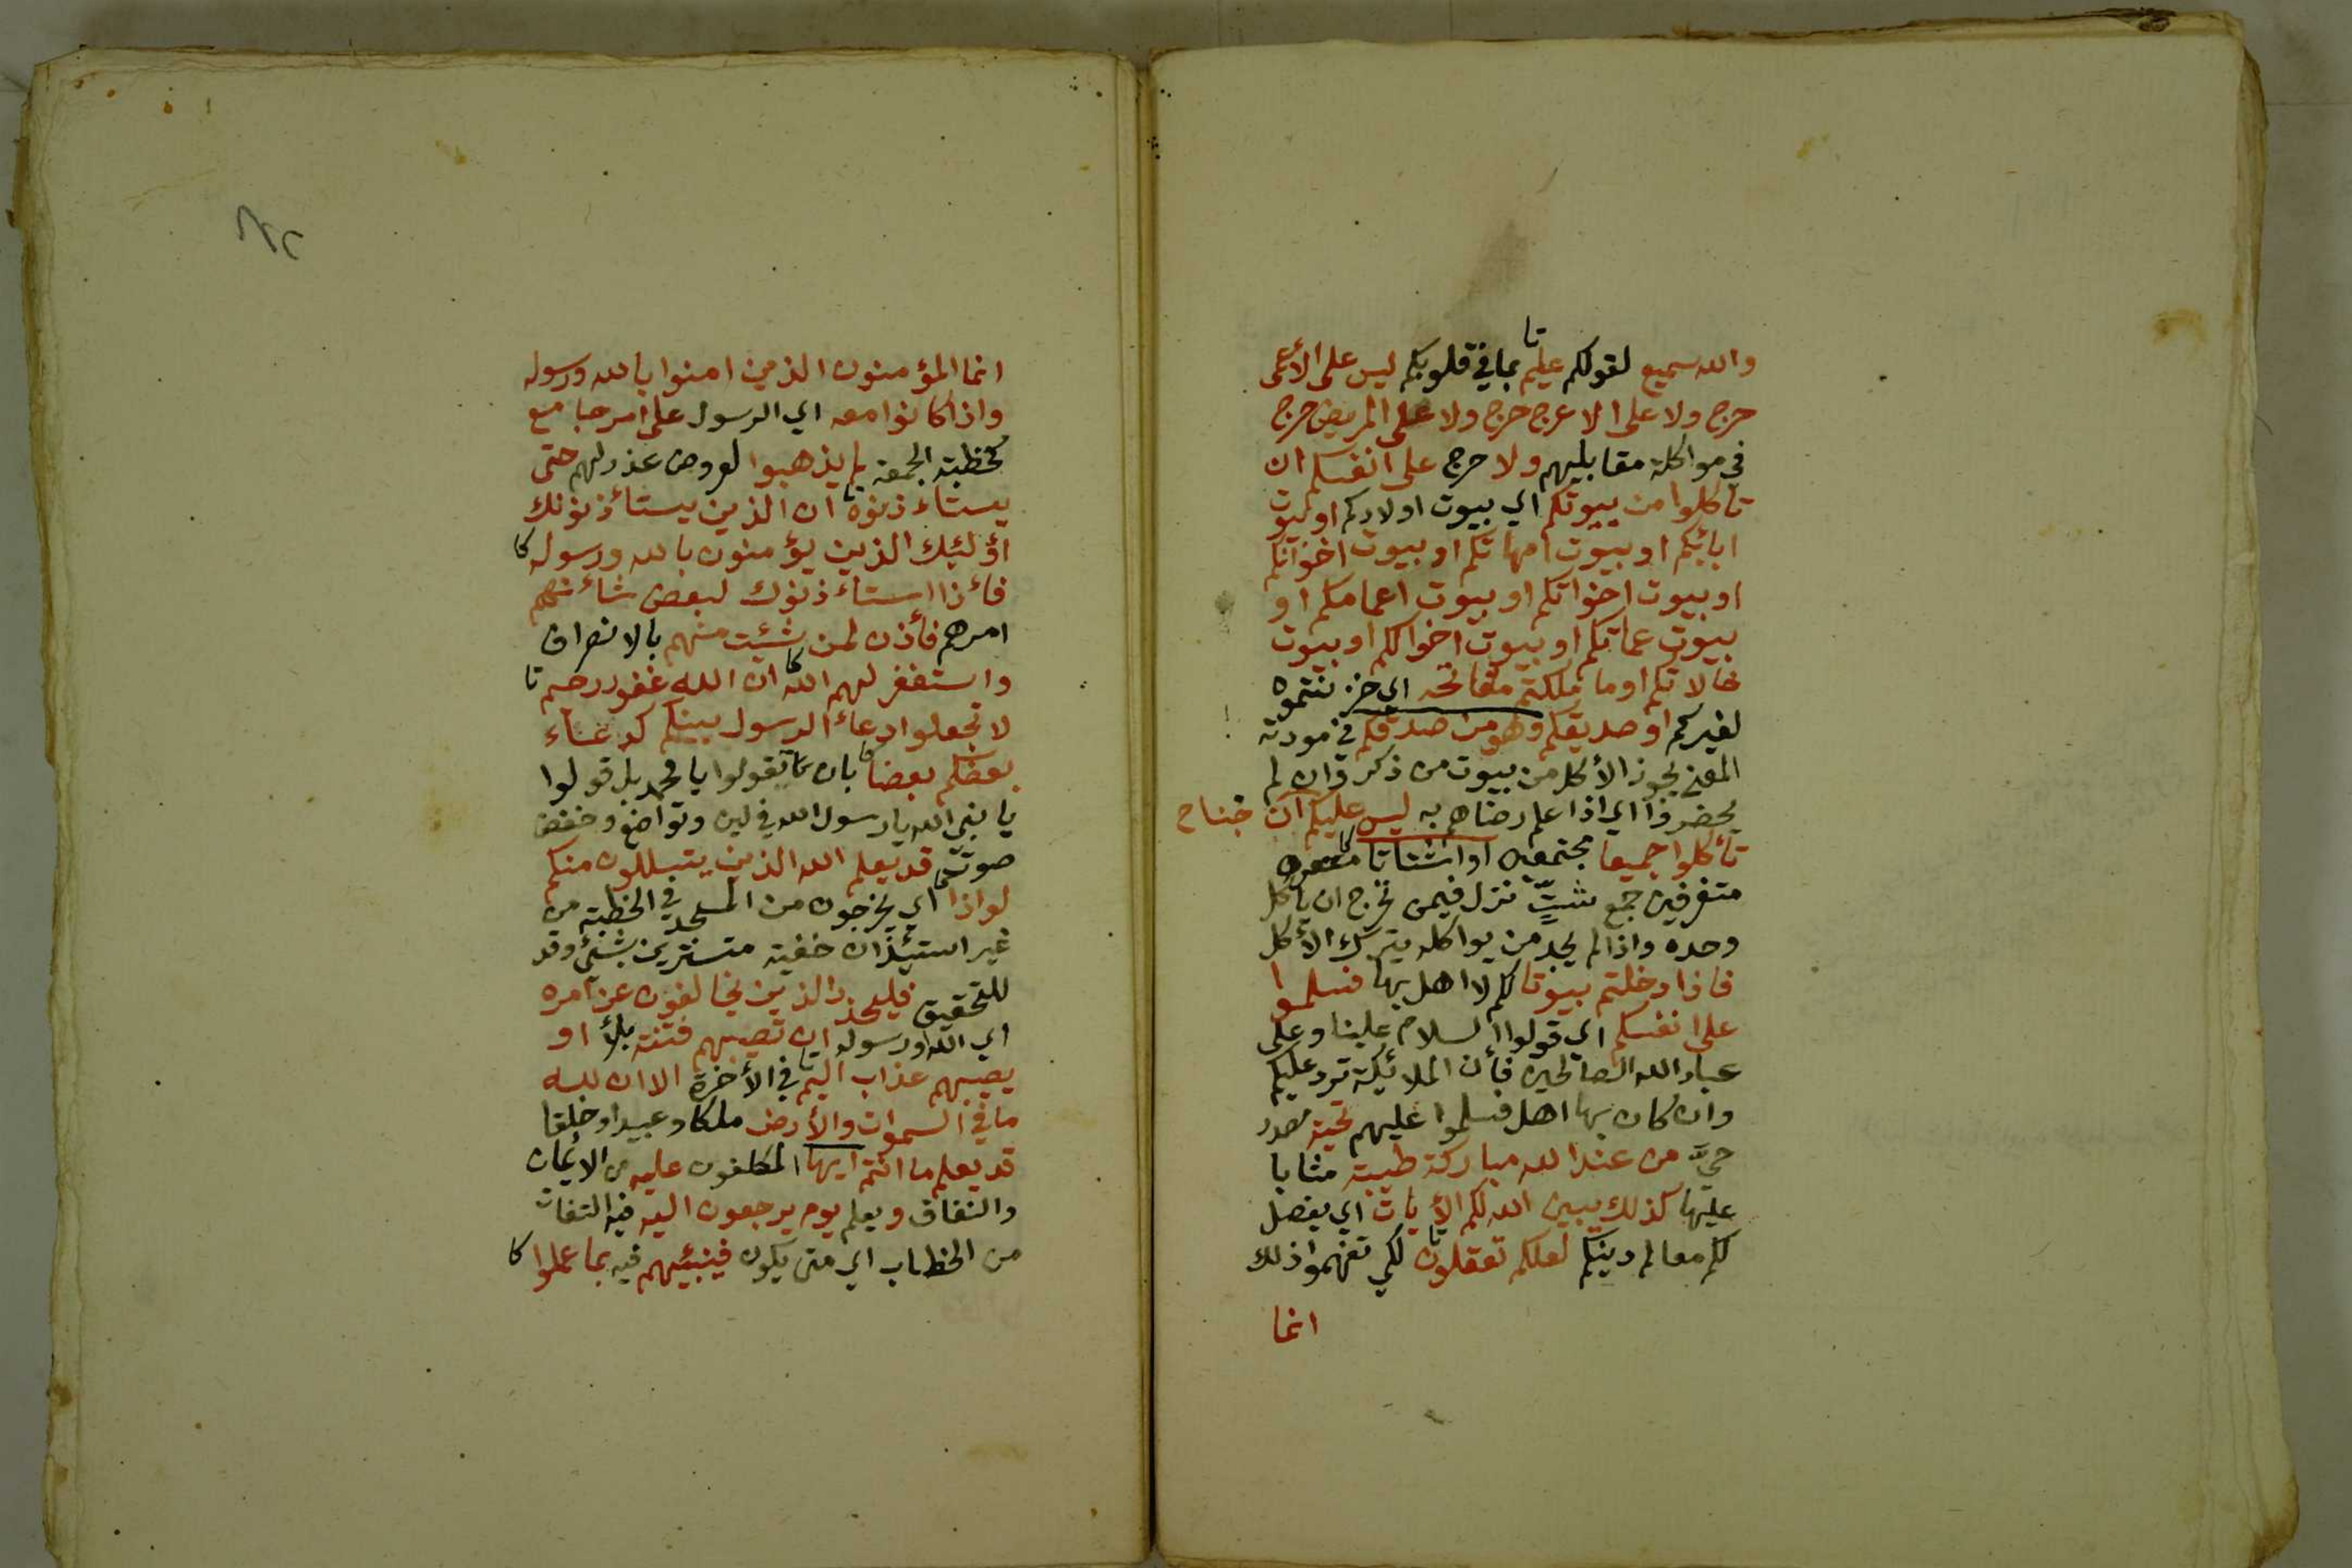 والله سميع لقولكم عليم تا بما في قلوبكم ليس على الأعمى
حرج ولا على الاعرج حرج ولا على المريض حرج
في مواكلة مقابليهم ولا حرج على انفسكم ان
تاكلوا من بيوتكم اي بيوت اولادكم او بيوت
ابائكم او بيوت امهاتكم او بيوت اخوانكم
او بيوت اخواتكم او بيوت اعمامكم او
بيوت عماتكم او بيوت اخوالكم او بيوت
خالاتكم او ما ملكتم مفاتحه اي خزنتموه
لغيركم او صديقكم وهو من صدقكم في مودته
المعنى يجوز الأكل من بيوت من ذكر وان لم
يحضروا اي اذا علم رضاهم به ليس عليكم جناح ان
تأكلوا جميعا مجتمعين او اشتاتا كا
متفرقين جمع شتّ نزل فيمن تحرج ان يأكل
وحده واذا لم يجد من يواكله يترك الأكل
فاذا دخلتم بيوتا لكم لا اهل بها فسلموا
على انفسكم اي قولوا السلام علينا وعلى
عباد الله الصالحين فأن الملائكة ترد عليكم
وان كان بها اهل فسلموا عليهم تحية مصدر
حيّ من عند الله مباركة طيبة مثابا
عليها كذلك يبين الله لكم الأيات اي يفصل
لكم معالم دينكم لعلكم تعقلون تا لكي تفهموا ذلك
انما
انما المؤمنون الذين امنوا بالله ورسوله
واذا كانوا معه اي الرسول على امر جامع
كخطبة الجمعة لم يذهبوا لعروض عذر لهم حتى
يستاءذنوه تا ان الذين يستأذنونك
اؤلئك الذين يؤمنون بالله ورسوله كا
فأذا استاءذنوك لبعض شأنهم
امرهم فأذن لمن شئت منهم بالانصراف
واستغفر لهم الله كا ان الله غفور رحيم تا
لا تجعلوا دعاء الرسول بينكم كدعاء
بعضكم بعضا كا بان تقولوا يا محمد بل قولوا
يا نبي الله يا رسول الله في لين وتواضع وخفض
صوت قد يعلم الله الذين يتسللون منكم
لواذا كا اي يخرجون من المسجد في الخطبة من
غير استيئذان خفية متسترين بشيء وقد
للتحقيق فليحذر الذين يخالفون عن امره
اي الله ورسوله ان تصيبهم فتنة بلأ او
يصيبهم عذاب اليم تا في الأخرة الا ان لله
ما في السموات والأرض ملكا وعبيدا وخلقا
قد يعلم ما انتم ايها المكلفون عليه من الايمان
والنفاق ويعلم يوم يرجعون اليه فيه التفات
من الخطاب اي متى يكون فينبئهم فيه بما عملوا كا